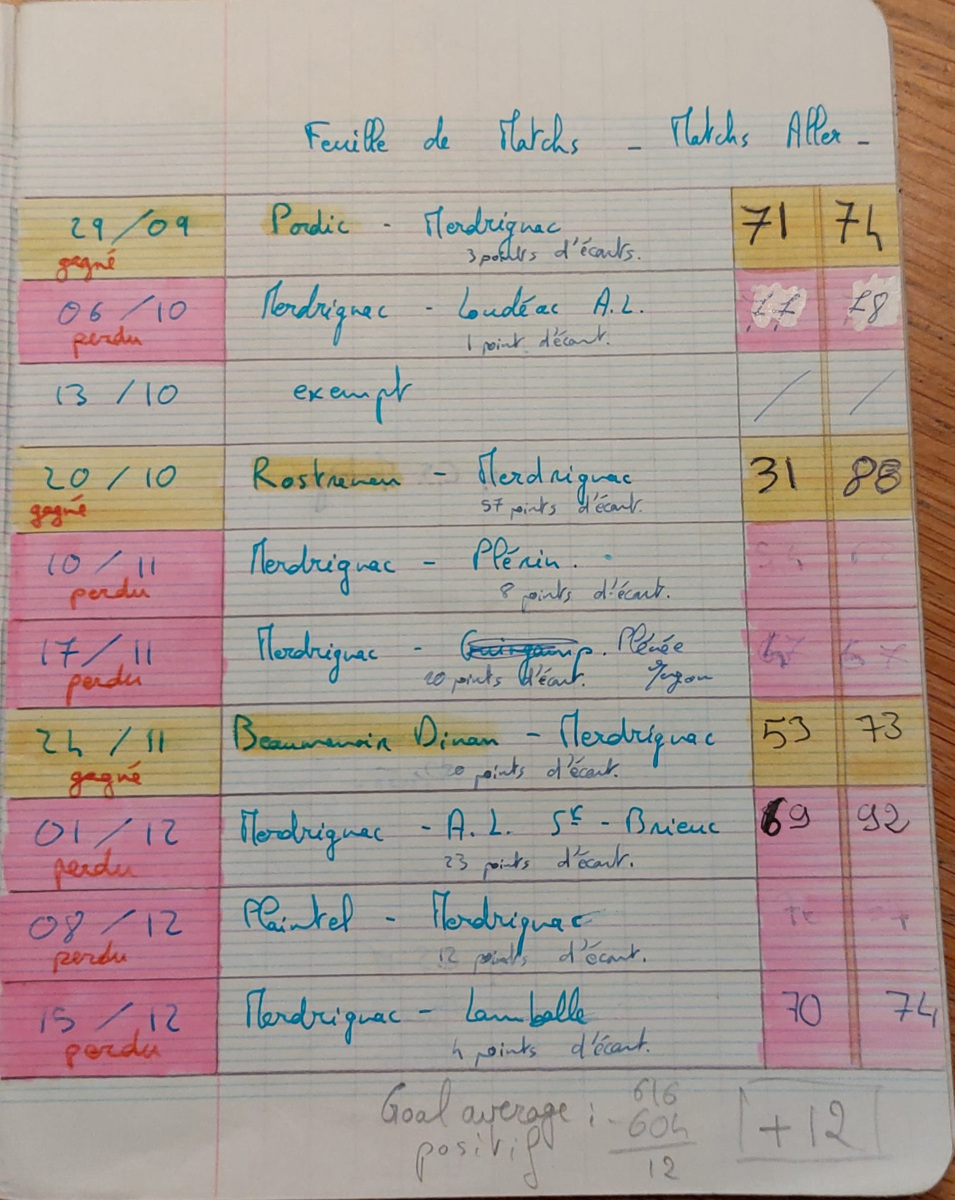 Feuille de Matchs - Matchs Aller -
29/09 Pordic - Merdrignac 71 74
gagné 3 points d'écarts.
06/10 Merdrignac - Loudéac A.L.
perdu 1 point d'écart.
13/10 exempt / /
20/10 Rostrenen - Merdrignac 31 88
gagné 57 points d'écart.
10/11 Merdrignac - Plérin.
perdu 8 points d'écart.
17/11 Merdrignac - Guingamp. Plénée
perdu 20 points d'écart. Jugon
24/11 Beaumanoir Dinan - Merdrignac 53 73
gagné 20 points d'écart.
01/12 Merdrignac - A.L. St - Brieuc 69 92
perdu 23 points d'écart.
08/12 Plaintel - Merdrignac
perdu 12 points d'écart.
15/12 Merdrignac - Lamballe 70 74
perdu 4 points d'écart.
Goal average : 616
positif - 604 +12
12